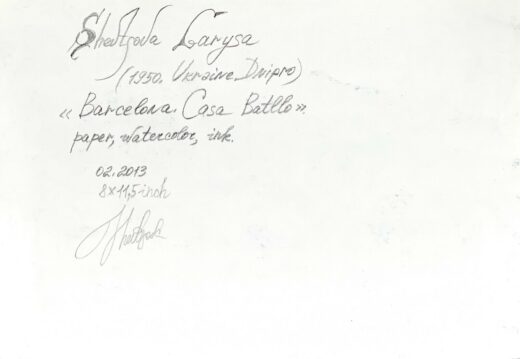 Larysa
(1950. Ukraine. Dnipro)
« Barcelona. Casa Batllo».
paper, watercolor, ink.
02.2013
8×11,5 inch